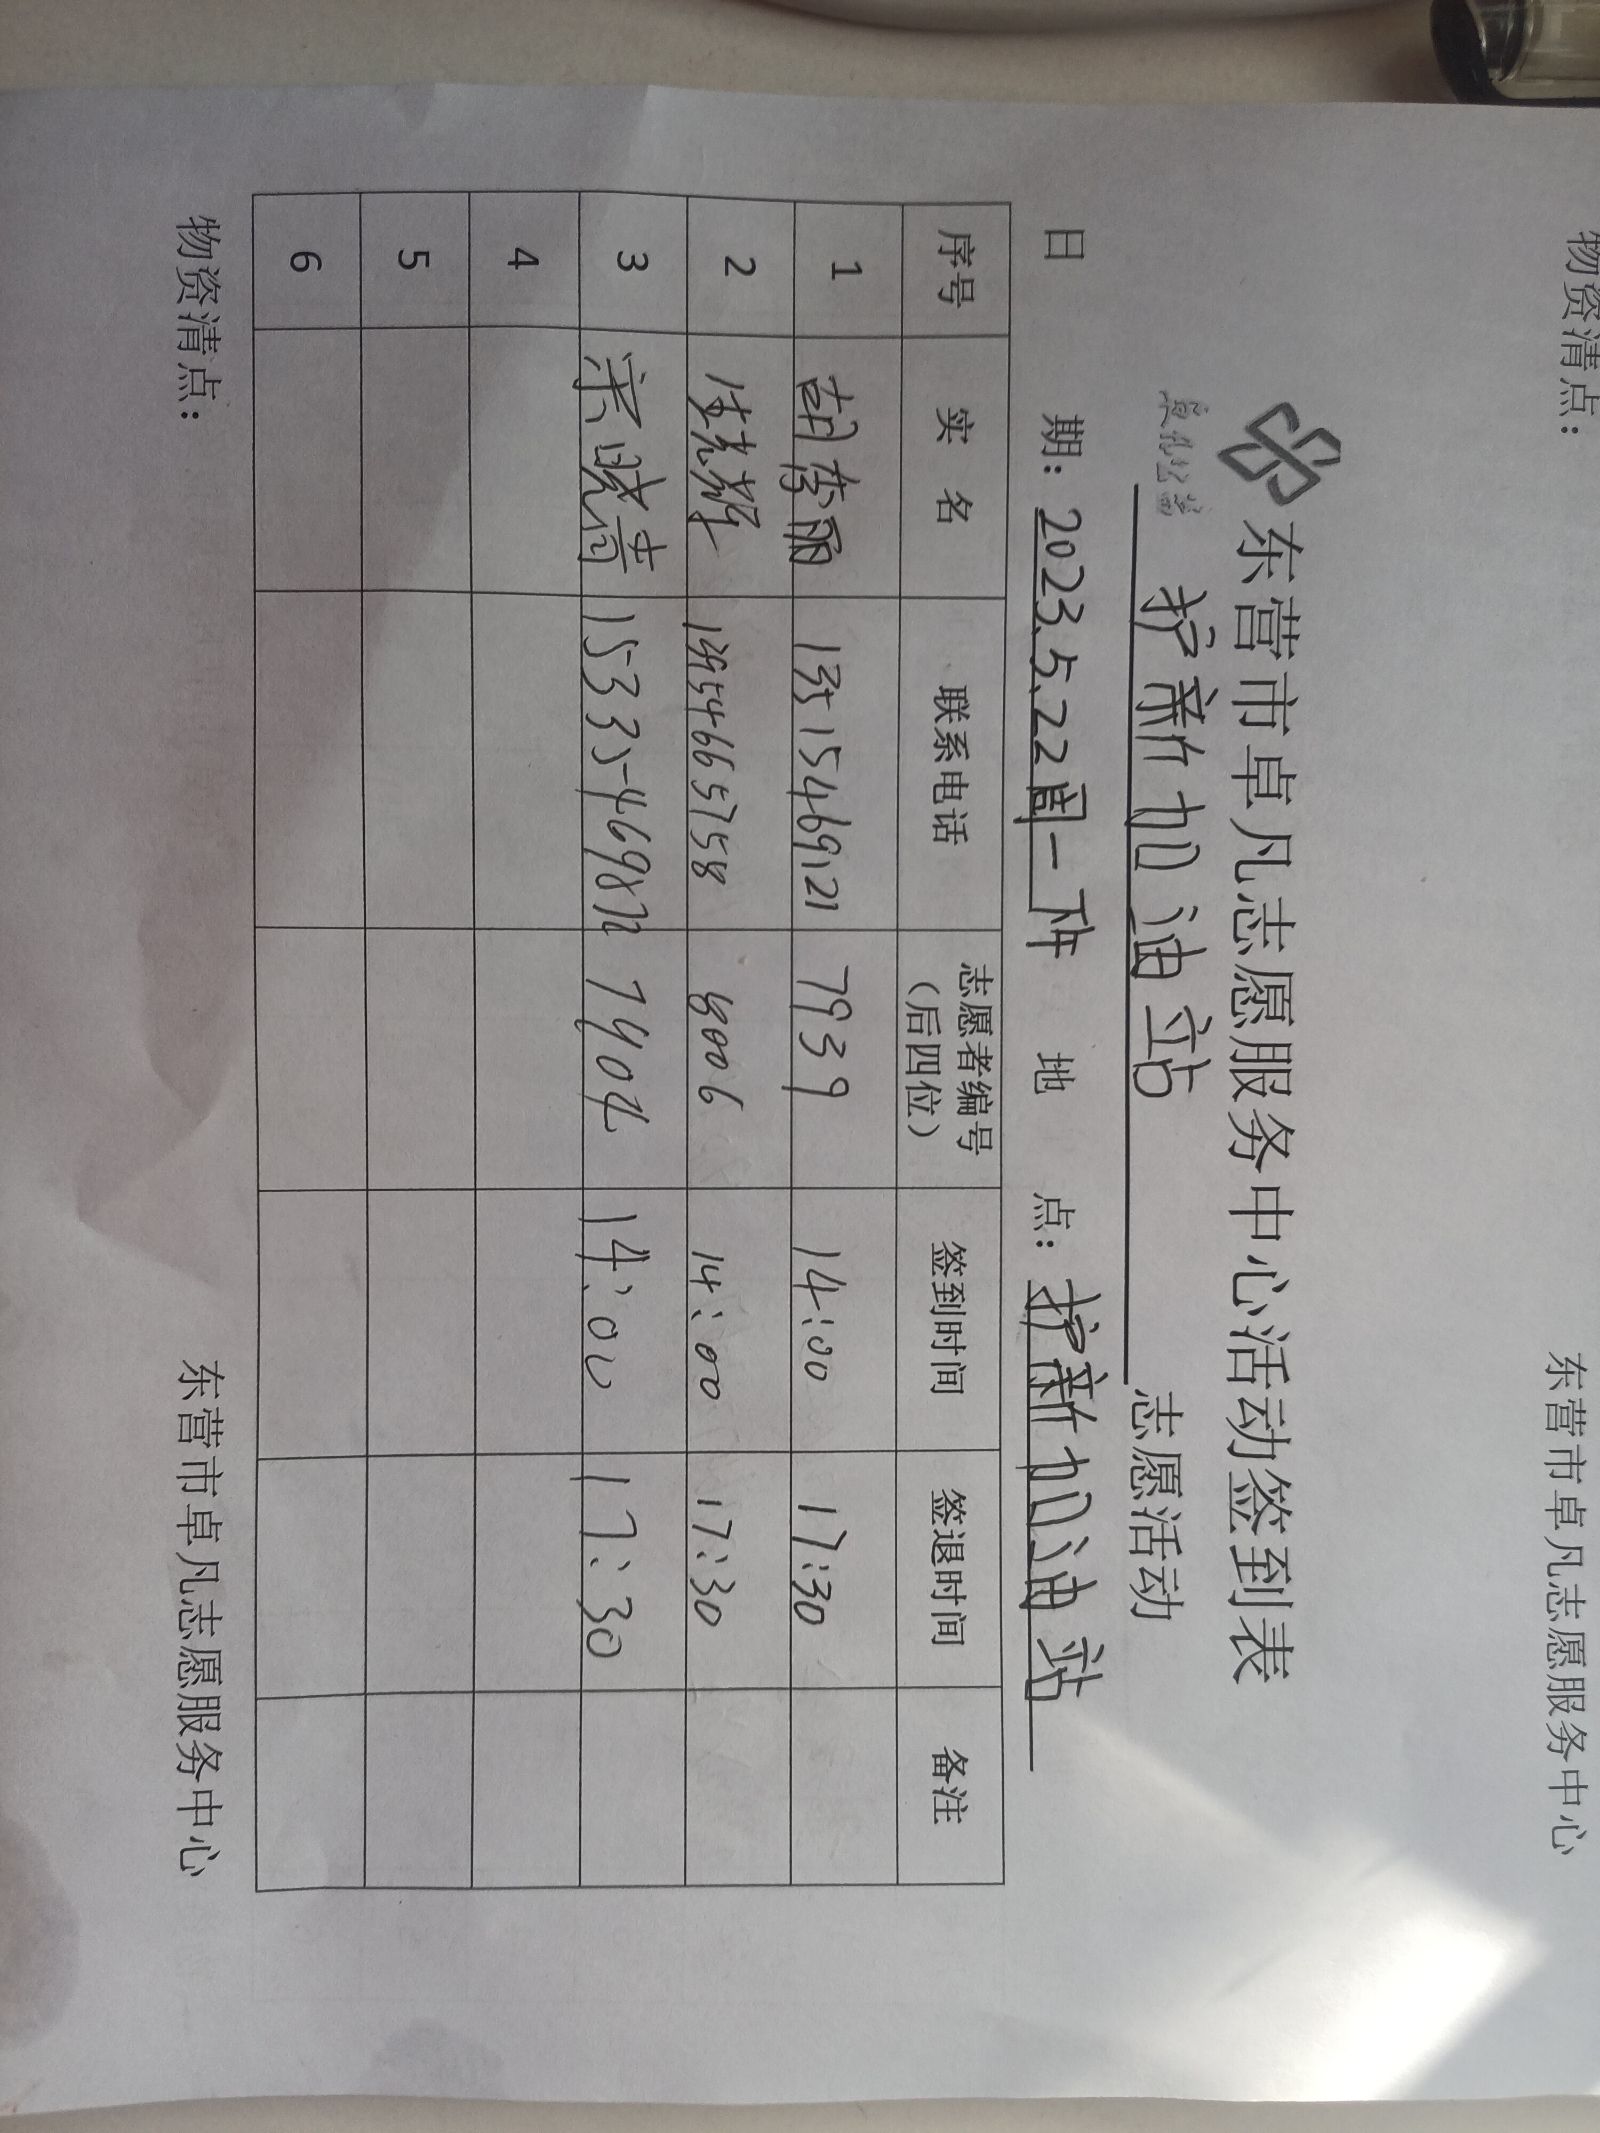 物资清点：
东营市卓凡志愿服务中心
东营市卓凡志愿服务中心活动签到表
护新加油站 志愿活动
日 期：2023.5.22周一下午 地 点：护新加油站
序号 实 名 联系电话 志愿者编号（后四位） 签到时间 签退时间 备注
1 胡秀丽 13515469121 7939 14:00 17:30
2 13954665758 8006 14:00 17:30
3 晓青 7904 14:00 17:30
4
5
6
物资清点：
东营市卓凡志愿服务中心